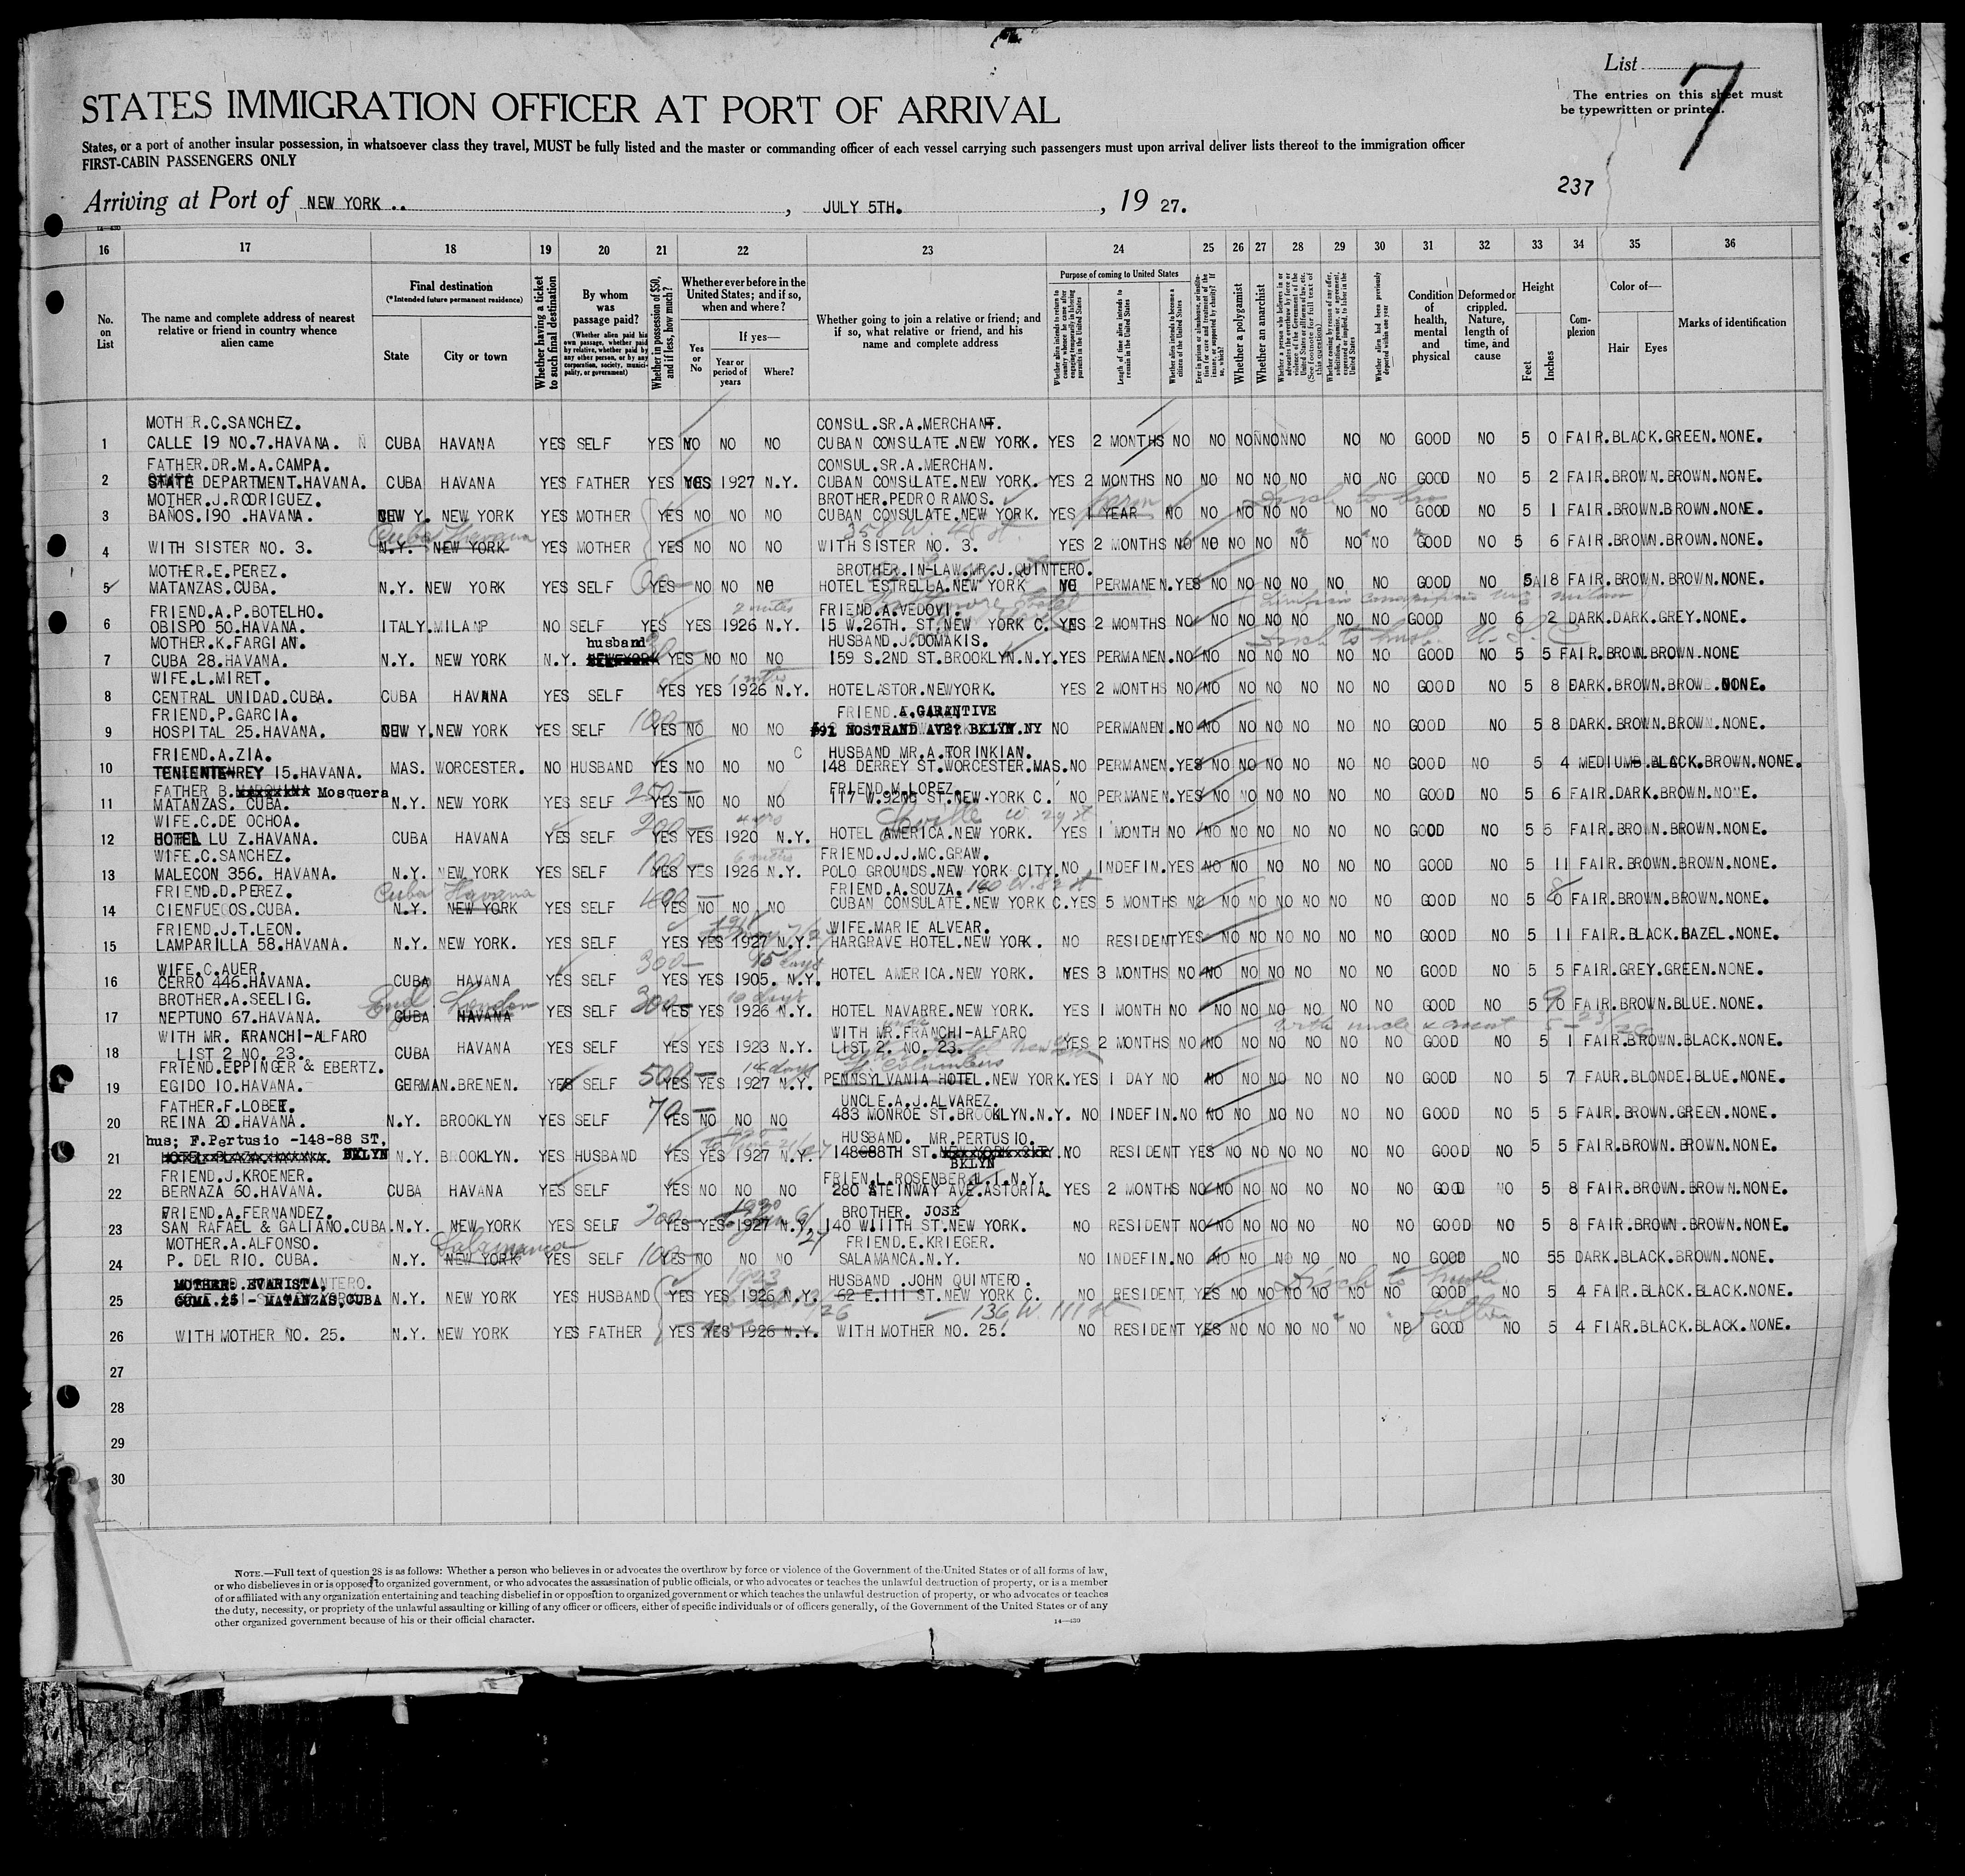 List 7
The entries on this sheet must
be typewritten or printed.
STATES IMMIGRATION OFFICER AT PORT OF ARRIVAL
States, or a port of another insular possession, in whatsoever class they travel, MUST be fully listed and the master or commanding officer of each vessel carrying such passengers must upon arrival deliver lists thereof to the immigration officer
FIRST-CABIN PASSENGERS ONLY
237
Arriving at Port of NEW YORK .. , JULY 5TH. , 19 27.
16 17 18 19 20 21 22 23 24 25 26 27 28 29 30 31 32 33 34 35 36
No. on List
The name and complete address of nearest relative or friend in country whence alien came
Final destination
(*Intended future permanent residence)
State City or town
Whether having a ticket to such final destination
By whom was passage paid?
Whether in possession of $50, and if less, how much?
Whether ever before in the United States; and if so, when and where?
Yes or No
If yes—
Year or period of years
Where?
Whether going to join a relative or friend; and if so, what relative or friend, and his name and complete address
Purpose of coming to United States
Length of time alien intends to remain in the United States
Whether alien intends to become a citizen of the United States
Whether a polygamist
Whether an anarchist
Condition of health, mental and physical
Deformed or crippled. Nature, length of time, and cause
Height
Feet Inches
Complexion
Color of—
Hair Eyes
Marks of identification
MOTHER.C.SANCHEZ. CONSUL.SR.A.MERCHANT.
1 CALLE 19 NO.7.HAVANA. CUBA HAVANA YES SELF YES NO NO NO CUBAN CONSULATE.NEW YORK. YES 2 MONTHS NO NO NO NO NO NO NO GOOD NO 5 0 FAIR.BLACK.GREEN.NONE.
FATHER.DR.M.A.CAMPA. CONSUL.SR.A.MERCHAN.
2 STATE DEPARTMENT.HAVANA. CUBA HAVANA YES FATHER YES YES 1927 N.Y. CUBAN CONSULATE.NEW YORK. YES 2 MONTHS NO NO NO NO NO NO NO GOOD NO 5 2 FAIR.BROWN.BROWN.NONE.
MOTHER.J.RODRIGUEZ. BROTHER.PEDRO RAMOS.
3 BAÑOS.190 .HAVANA. NEW Y. NEW YORK YES MOTHER YES NO NO NO CUBAN CONSULATE.NEW YORK. YES 1 YEAR NO NO NO NO NO NO NO GOOD NO 5 1 FAIR.BROWN.BROWN.NONE.
Cuba Havana 358 W. 48 st.
4 WITH SISTER NO. 3. N.Y. NEW YORK YES MOTHER YES NO NO NO WITH SISTER NO. 3. YES 2 MONTHS NO NO NO NO NO NO NO GOOD NO 5 6 FAIR.BROWN.BROWN.NONE.
MOTHER.E.PEREZ. BROTHER.IN-LAW.MR.J.QUINTERO.
5 MATANZAS.CUBA. N.Y. NEW YORK YES SELF 60 YES NO NO NO HOTEL ESTRELLA.NEW YORK NO PERMANEN.YES NO NO NO NO NO NO GOOD NO 5 8 FAIR.BROWN.BROWN.NONE.
FRIEND.A.P.BOTELHO. FRIEND.A.VEDOVI.
6 OBISPO 50.HAVANA. ITALY.MILANP NO SELF YES YES 1926 N.Y. 15 W.26TH. ST.NEW YORK C. YES 2 MONTHS NO NO NO NO NO NO NO GOOD NO 6 2 DARK.DARK.GREY.NONE.
MOTHER.K.FARGIAN. husband HUSBAND.J.DOMAKIS.
7 CUBA 28.HAVANA. N.Y. NEW YORK N.Y. YES NO NO NO 159 S.2ND ST.BROOKLYN.N.Y.YES PERMANEN.NO NO NO NO NO NO NO GOOD NO 5 5 FAIR.BROWN.BROWN.NONE
WIFE.L.MIRET.
8 CENTRAL UNIDAD.CUBA. CUBA HAVANA YES SELF YES YES 1926 N.Y. HOTELASTOR.NEWYORK. YES 2 MONTHS NO NO NO NO NO NO NO GOOD NO 5 8 DARK.BROWN.BROWN.NONE.
FRIEND.P.GARCIA. FRIEND.A.GARANTIVE
9 HOSPITAL 25.HAVANA. NEW Y.NEW YORK YES SELF 100 YES NO NO NO 591 NOSTRAND AVE? BKLYN.NY NO PERMANEN.NO NO NO NO NO NO NO GOOD NO 5 8 DARK.BROWN.BROWN.NONE.
FRIEND.A.ZIA. HUSBAND MR.A.TORINKIAN.
10 TENIENTE REY 15.HAVANA. MAS. WORCESTER. NO HUSBAND YES NO NO NO 148 DERREY ST.WORCESTER.MAS.NO PERMANEN.YES NO NO NO NO NO NO GOOD NO 5 4 MEDIUM.BLACK.BROWN.NONE.
FATHER B. Mosquera FRIEND.M.LOPEZ.
11 MATANZAS. CUBA. N.Y. NEW YORK YES SELF 250 YES NO NO NO 117 W.92ND ST.NEW-YORK C. NO PERMANEN.YES NO NO NO NO NO NO GOOD NO 5 6 FAIR.DARK.BROWN.NONE.
WIFE.C.DE OCHOA. Seville W 29 st
12 HOTEL LU Z.HAVANA. CUBA HAVANA YES SELF 200 YES YES 1920 N.Y. HOTEL AMERICA.NEW YORK. YES 1 MONTH NO NO NO NO NO NO NO GOOD NO 5 5 FAIR.BROWN.BROWN.NONE.
WIFE.C.SANCHEZ. FRIEND.J.J.MC.GRAW.
13 MALECON 356. HAVANA. N.Y. NEW YORK YES SELF 100 YES YES 1926 N.Y. POLO GROUNDS.NEW YORK CITY.NO INDEFIN.YES NO NO NO NO NO NO GOOD NO 5 11 FAIR.BROWN.BROWN.NONE.
FRIEND.D.PEREZ. Cuba Havana FRIEND.A.SOUZA.
14 CIENFUEGOS.CUBA. N.Y. NEW YORK YES SELF YES NO NO NO CUBAN CONSULATE.NEW YORK C.YES 5 MONTHS NO NO NO NO NO NO NO GOOD NO 5 8 FAIR.BROWN.BROWN.NONE.
FRIEND.J.T.LEON. WIFE.MARIE ALVEAR.
15 LAMPARILLA 58.HAVANA. N.Y. NEW YORK. YES SELF YES YES 1927 N.Y. HARGRAVE HOTEL.NEW YORK. NO RESIDENT YES NO NO NO NO NO NO GOOD NO 5 11 FAIR.BLACK.HAZEL.NONE.
WIFE.C.AUER. 300 15 days
16 CERRO 446.HAVANA. CUBA HAVANA YES SELF YES YES 1905. N.Y. HOTEL AMERICA.NEW YORK. YES 3 MONTHS NO NO NO NO NO NO NO GOOD NO 5 5 FAIR.GREY.GREEN.NONE.
BROTHER.A.SEELIG. Engl London 10 days
17 NEPTUNO 67.HAVANA. CUBA HAVANA YES SELF 300 YES YES 1926 N.Y. HOTEL NAVARRE.NEW YORK. YES 1 MONTH NO NO NO NO NO NO NO GOOD NO 5 9 FAIR.BROWN.BLUE.NONE.
WITH MR. FRANCHI-ALFARO WITH MR.FRANCHI-ALFARO with uncle & aunt
18 LIST 2 NO. 23. CUBA HAVANA YES SELF YES YES 1923 N.Y. LIST 2. NO. 23. YES 2 MONTHS NO NO NO NO NO NO NO GOOD NO 5 1 FAIR.BROWN.BLACK.NONE.
FRIEND.EPPINGER & EBERTZ. 14 days
19 EGIDO 10.HAVANA. GERMAN.BRENEN. YES SELF 500 YES YES 1927 N.Y. PENNSYLVANIA HOTEL.NEW YORK.YES 1 DAY NO NO NO NO NO NO NO GOOD NO 5 7 FAUR.BLONDE.BLUE.NONE.
FATHER.F.LOBET. UNCLE.A.J.ALVAREZ.
20 REINA 20.HAVANA. N.Y. BROOKLYN YES SELF 70 YES NO NO NO 483 MONROE ST.BROOKLYN.N.Y. NO INDEFIN.NO NO NO NO NO NO NO GOOD NO 5 5 FAIR.BROWN.GREEN.NONE.
hus; F.Pertusio -148-88 ST, HUSBAND. MR.PERTUSIO.
21 BKLYN N.Y. BROOKLYN. YES HUSBAND YES YES 1927 N.Y. 148 88TH ST. NO RESIDENT YES NO NO NO NO NO NO GOOD NO 5 5 FAIR.BROWN.BROWN.NONE.
BKLYN
FRIEND.J.KROENER. FRIEN.L.ROSENBERG.L.I.N.Y.
22 BERNAZA 60.HAVANA. CUBA HAVANA YES SELF YES NO NO NO 280 STEINWAY AVE.ASTORIA. YES 2 MONTHS NO NO NO NO NO NO NO GOOD NO 5 8 FAIR.BROWN.BROWN.NONE.
FRIEND.A.FERNANDEZ. BROTHER. JOSE
23 SAN RAFAEL & GALIANO.CUBA.N.Y. NEW YORK YES SELF 200 YES YES 1927 N.Y. 140 W111TH ST.NEW YORK. NO RESIDENT NO NO NO NO NO NO NO GOOD NO 5 8 FAIR.BROWN.BROWN.NONE.
MOTHER.A.ALFONSO. Salamanca FRIEND.E.KRIEGER.
24 P. DEL RIO. CUBA. N.Y. NEW YORK YES SELF 100 YES NO NO NO SALAMANCA.N.Y. NO INDEFIN.NO NO NO NO NO NO NO GOOD NO 55 DARK.BLACK.BROWN.NONE.
MOTHER. EVARISTA, HUSBAND .JOHN QUINTERO.
25 GUMA.25 - MATANZAS,CUBA N.Y. NEW YORK YES HUSBAND YES YES 1926 N.Y. 62 E.111 ST.NEW YORK C. NO RESIDENT, YES NO NO NO NO NO NO GOOD NO 5 4 FAIR.BLACK.BLACK.NONE.
136 W. 111 st
26 WITH MOTHER NO. 25. N.Y. NEW YORK YES FATHER YES YES 1926 N.Y. WITH MOTHER NO. 25. NO RESIDENT YES NO NO NO NO NO NO GOOD NO 5 4 FIAR.BLACK.BLACK.NONE.
27
28
29
30
NOTE.—Full text of question 28 is as follows: Whether a person who believes in or advocates the overthrow by force or violence of the Government of the United States or of all forms of law,
or who disbelieves in or is opposed to organized government, or who advocates the assassination of public officials, or who advocates or teaches the unlawful destruction of property, or is a member
of or affiliated with any organization entertaining and teaching disbelief in or opposition to organized government or which teaches the unlawful destruction of property, or who advocates or teaches
the duty, necessity, or propriety of the unlawful assaulting or killing of any officer or officers, either of specific individuals or of officers generally, of the Government of the United States or of any
other organized government because of his or their official character.
14—430